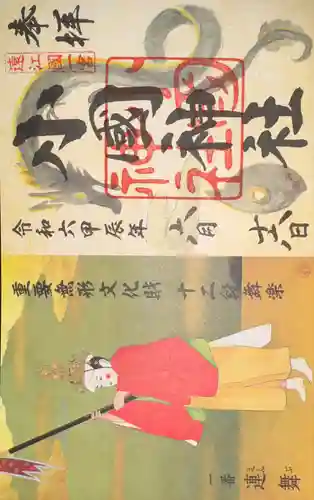 奉拝
遠江國一宮
小國神社
令和六甲辰年
六月
十六日
重要無形文化財 十二段舞楽
一番 連舞
れんぶ